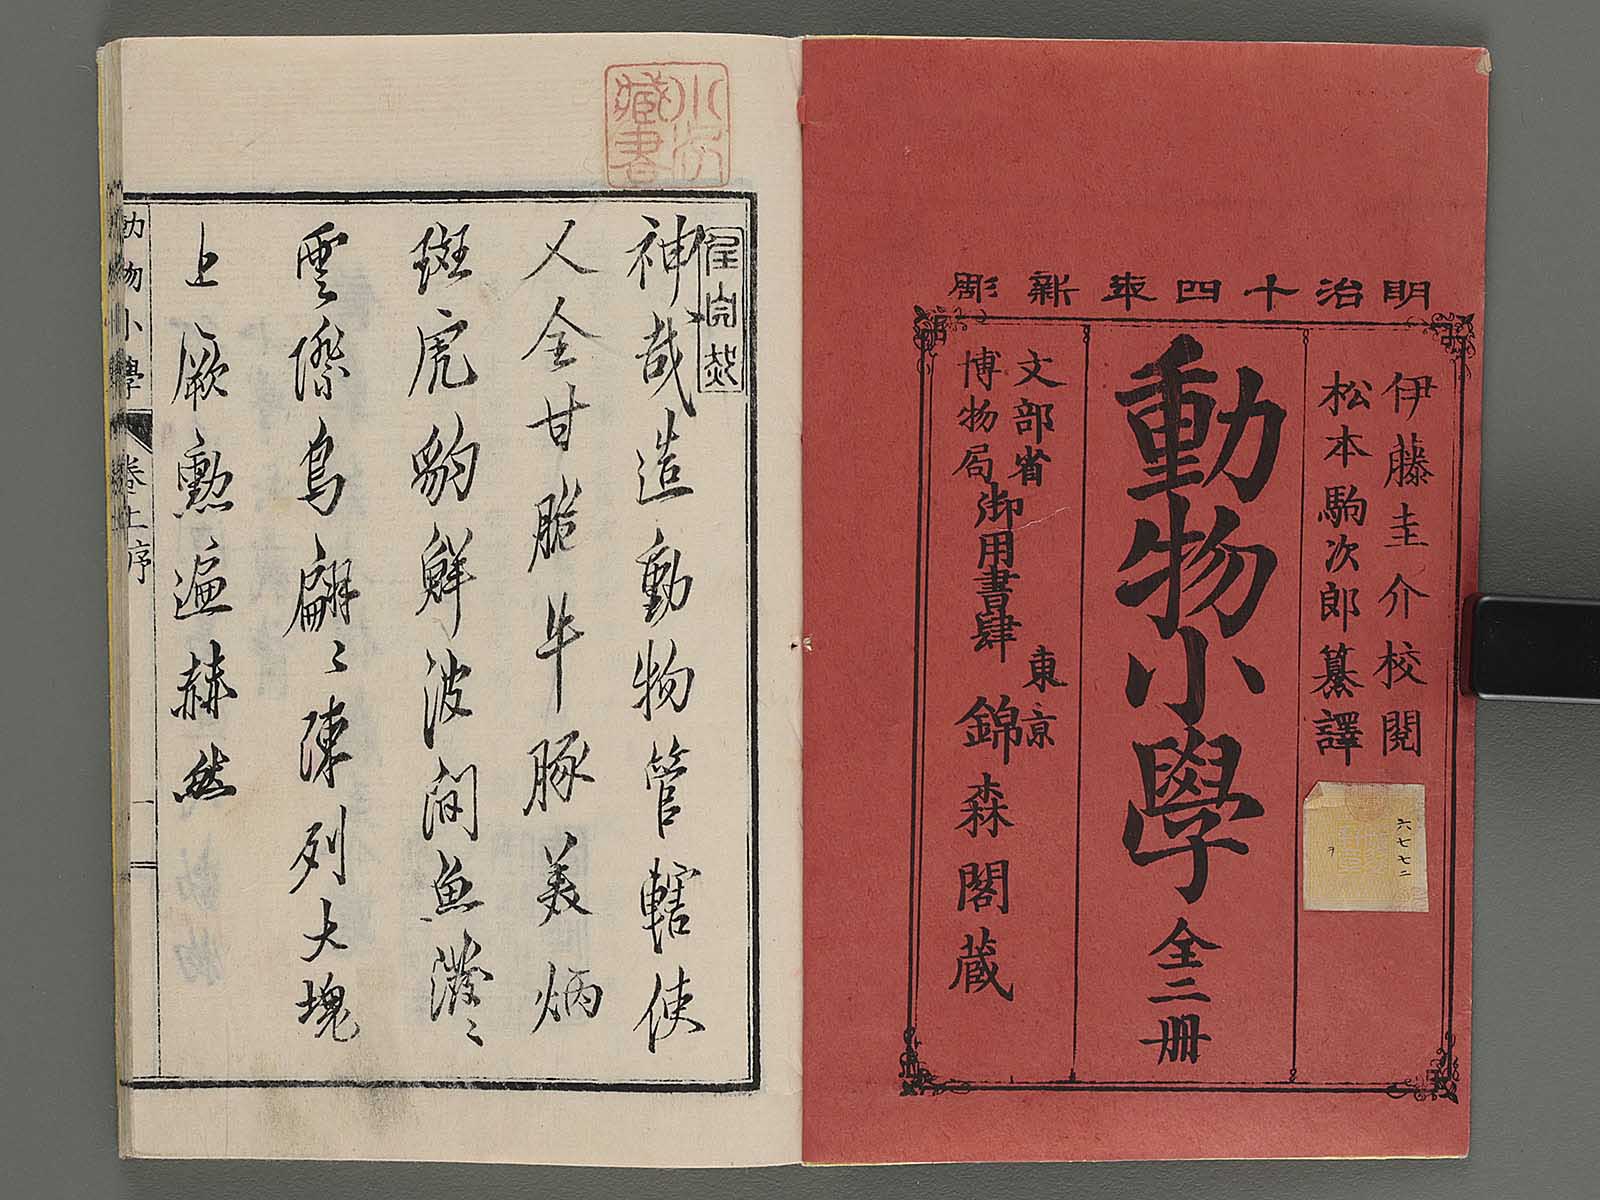 明治十四年新彫
伊藤圭介校閲
松本駒次郎纂譯
動物小學 全二冊
文部省
博物局
御用書肆
東京
錦森閣蔵
六七七二
藏書
神哉造動物管轄使
人全甘脆牛豚美炳
斑虎豹鮮波間魚潑〻
雲際鳥翩〻陳列大塊
上厥勲遍赫然
動物小學
卷上序
一